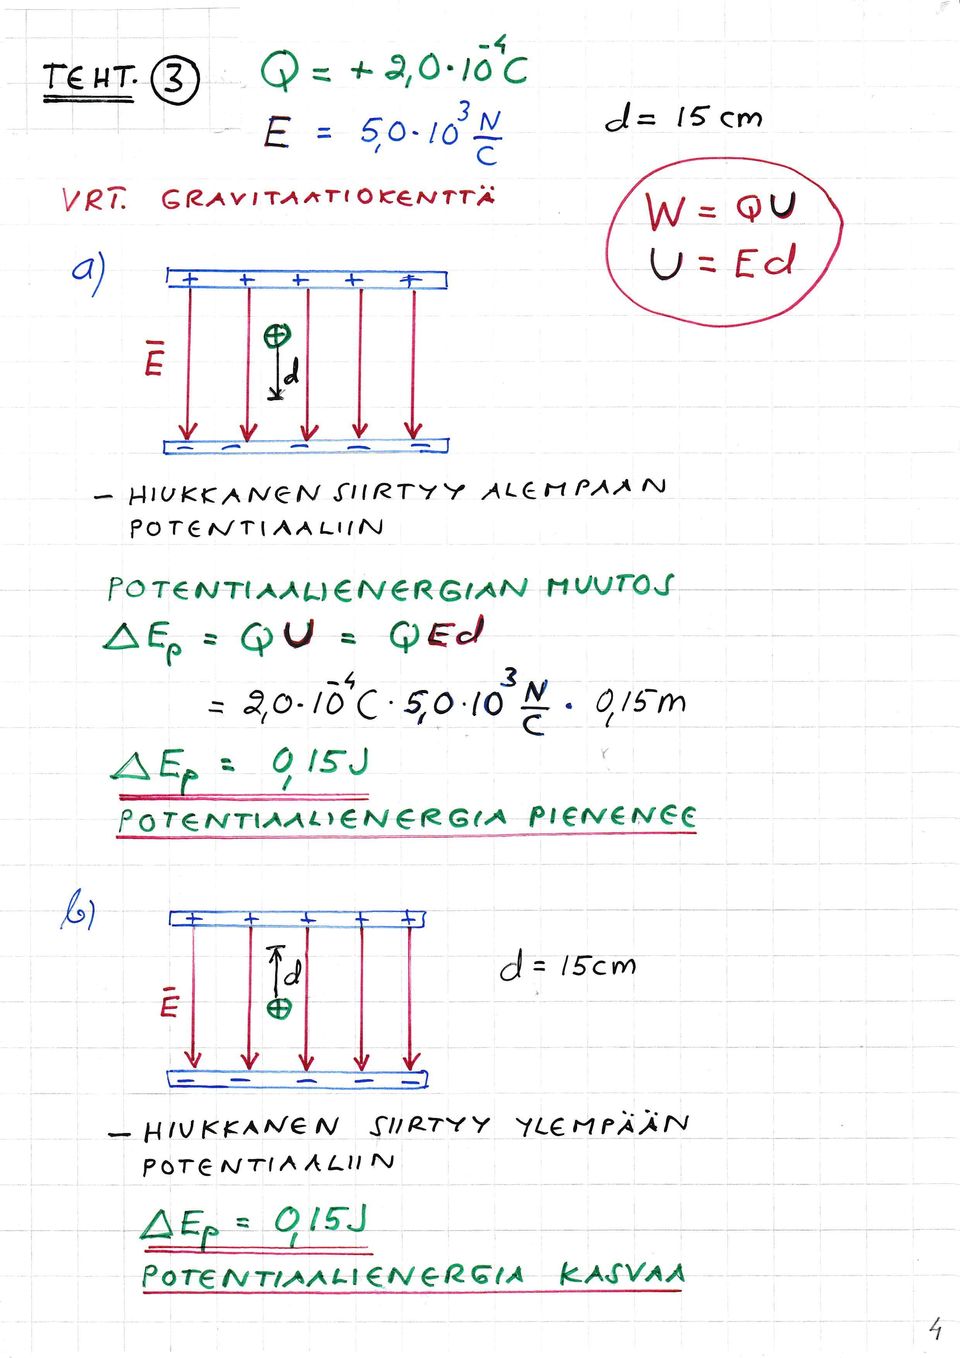 TEHT. ③ Q = + 2,0·10⁻⁴ C
E = 5,0·10³ N/C d = 15 cm
VRT. GRAVITAATIOKENTTÄ
W = QU
U = Ed
a)
+ + + + +
Ē
⊕
d
− − − − −
– HIUKKANEN SIIRTYY ALEMPAAN
POTENTIAALIIN
POTENTIAALIENERGIAN MUUTOS
ΔEₚ = QU = QEd
= 2,0·10⁻⁴ C · 5,0·10³ N/C · 0,15 m
ΔEₚ = 0,15 J
POTENTIAALIENERGIA PIENENEE
b)
+ + + + +
d d = 15 cm
Ē ⊕
− − − − −
– HIUKKANEN SIIRTYY YLEMPÄÄN
POTENTIAALIIN
ΔEₚ = 0,15 J
POTENTIAALIENERGIA KASVAA
4